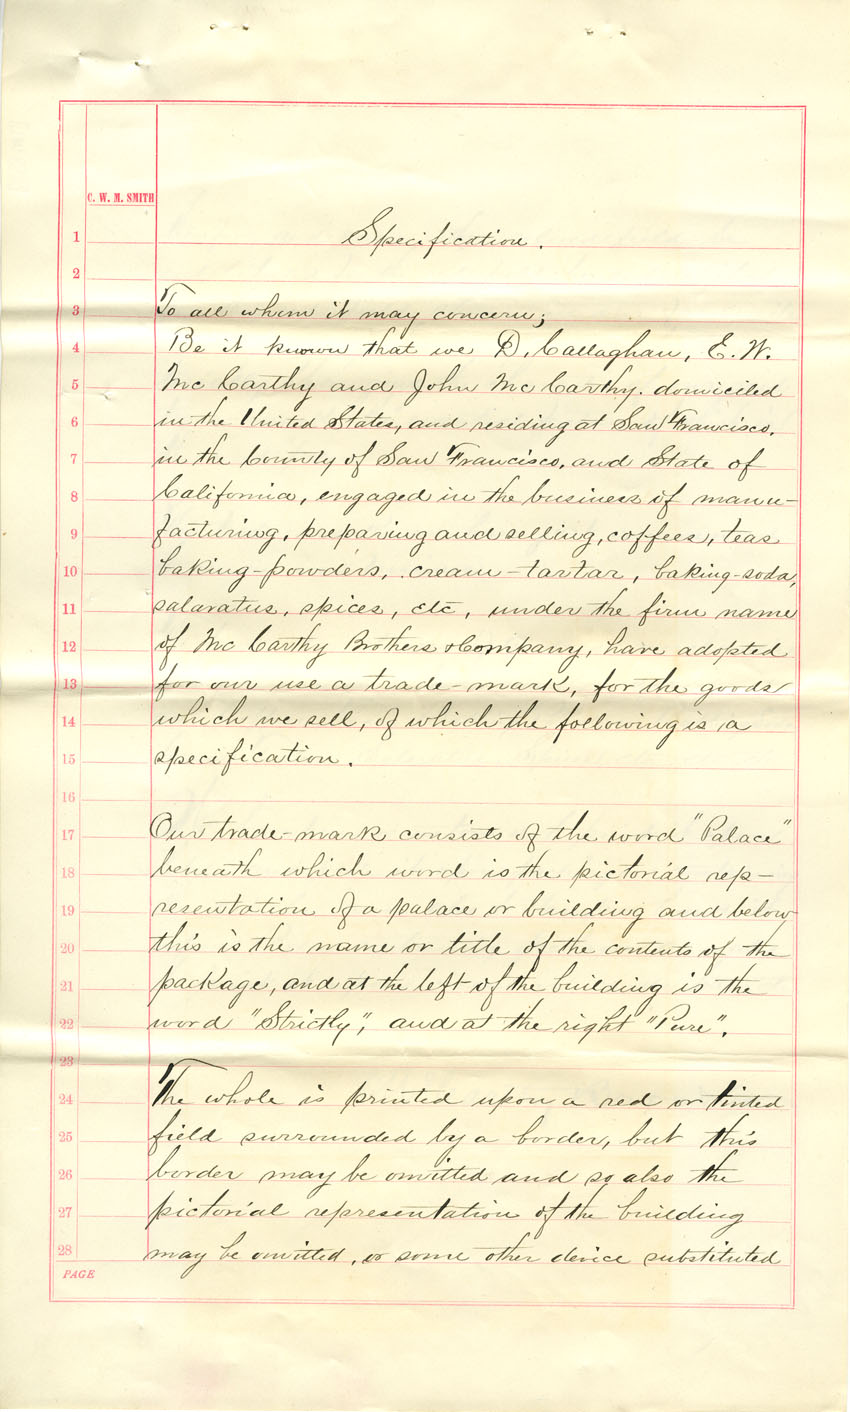 C. W. M. SMITH
1 Specification.
2
3 To all whom it may concern;
4 Be it known that we D. Callaghan, E. W.
5 Mc Carthy and John Mc Carthy. domiciled
6 in the United States, and residing at San Francisco,
7 in the County of San Francisco, and State of
8 California, engaged in the business of manu-
9 facturing, preparing and selling, coffees, teas
10 baking-powders, cream-tartar, baking-soda,
11 salaratus, spices, etc, under the firm name
12 of Mc Carthy Brothers & Company, have adopted
13 for our use a trade-mark, for the goods
14 which we sell, of which the following is a
15 specification.
16
17 Our trade-mark consists of the word "Palace"
18 beneath which word is the pictorial rep-
19 resentation of a palace or building and below
20 this is the name or title of the contents of the
21 package, and at the left of the building is the
22 word "Strictly", and at the right "Pure".
23
24 The whole is printed upon a red or tinted
25 field surrounded by a border, but this
26 border may be omitted and so also the
27 pictorial representation of the building
28 may be omitted, or some other device substituted
PAGE